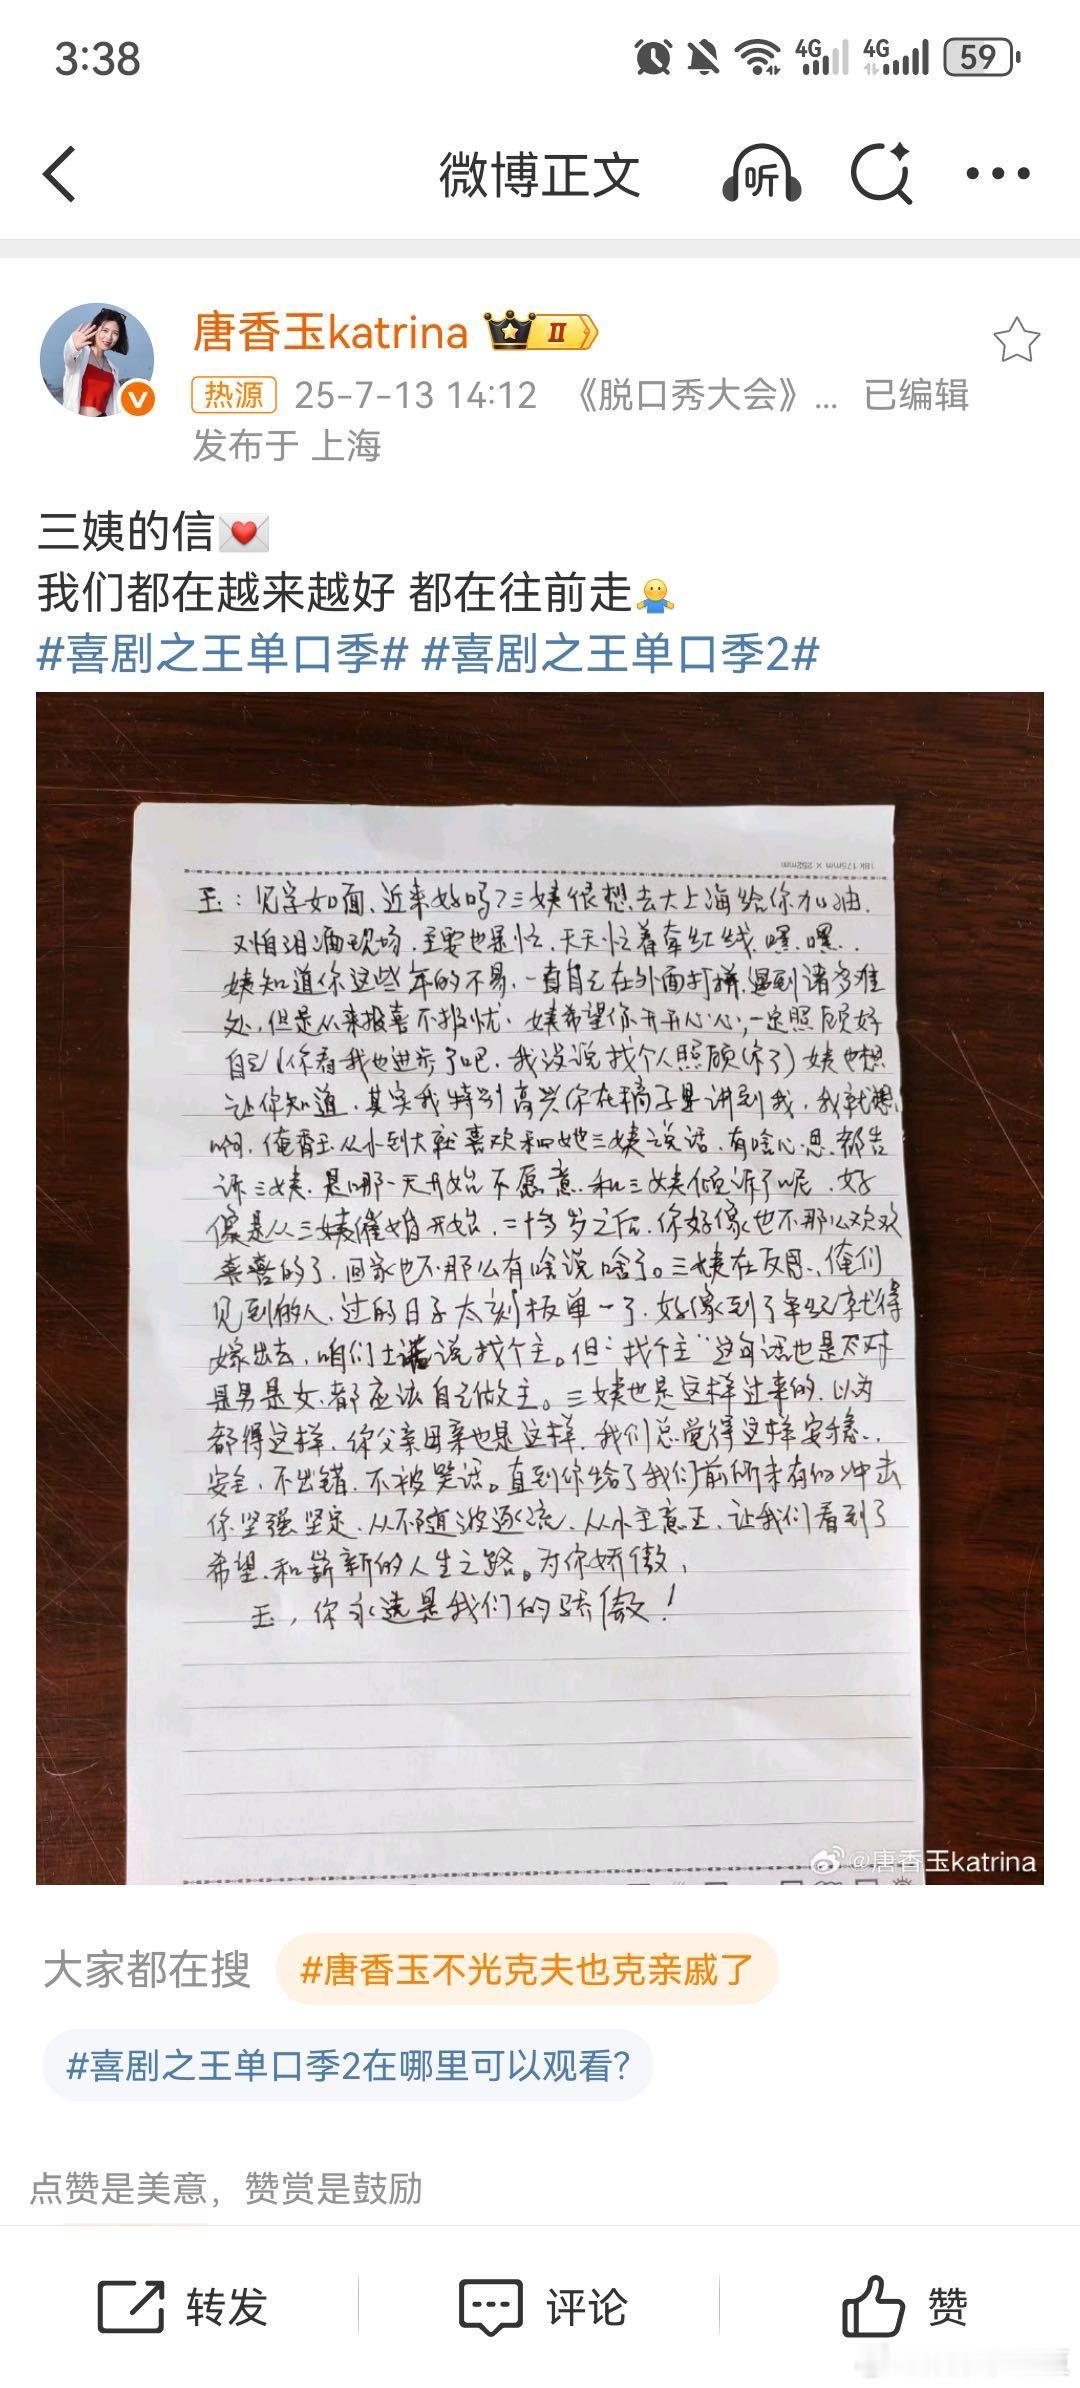 3:38
4G
4G
59
微博正文
听
唐香玉katrina
II
热源 25-7-13 14:12 《脱口秀大会》... 已编辑
发布于 上海
三姨的信
我们都在越来越好 都在往前走
#喜剧之王单口季# #喜剧之王单口季2#
18k 175mm × 252mm
玉：见字如面、近来好吗？三姨很想去大上海给你加油，
又怕泪洒现场，主要也是忙，天天忙着牵红线，嘿、嘿..
姨知道你这些年的不易，一直自己在外面打拼，遇到诸多难
处，但是从来报喜不报忧、姨希望你开开心心，一定照顾好
自己（你看我也进步了吧，我没说找个人照顾你了）姨也想
让你知道，其实我特别高兴你在稿子里讲到我，我就想
啊，俺香玉从小到大就喜欢和她三姨说话，有啥心思都告
诉三姨，是哪一天开始不愿意和三姨倾诉了呢，好
像是从三姨催婚开始，二十多岁之后，你好像也不那么欢欢
喜喜的了，回家也不那么有啥说啥了。三姨在反思，俺们
见到的人，过的日子太刻板单一了，好像到了年纪就得
嫁出去，咱们土话说找个主。但“找个主”这句话也是不对
是男是女，都应该自己做主。三姨也是这样过来的，以为
都得这样，你父亲母亲也是这样，我们总觉得这样安稳、
安全，不出错，不被笑话。直到你给了我们前所未有的冲击
你坚强坚定，从不随波逐流，从小主意正，让我们看到了
希望、和崭新的人生之路。为你骄傲，
玉，你永远是我们的骄傲！
@唐香玉katrina
大家都在搜 #唐香玉不光克夫也克亲戚了
#喜剧之王单口季2在哪里可以观看?
点赞是美意，赞赏是鼓励
转发 评论 赞